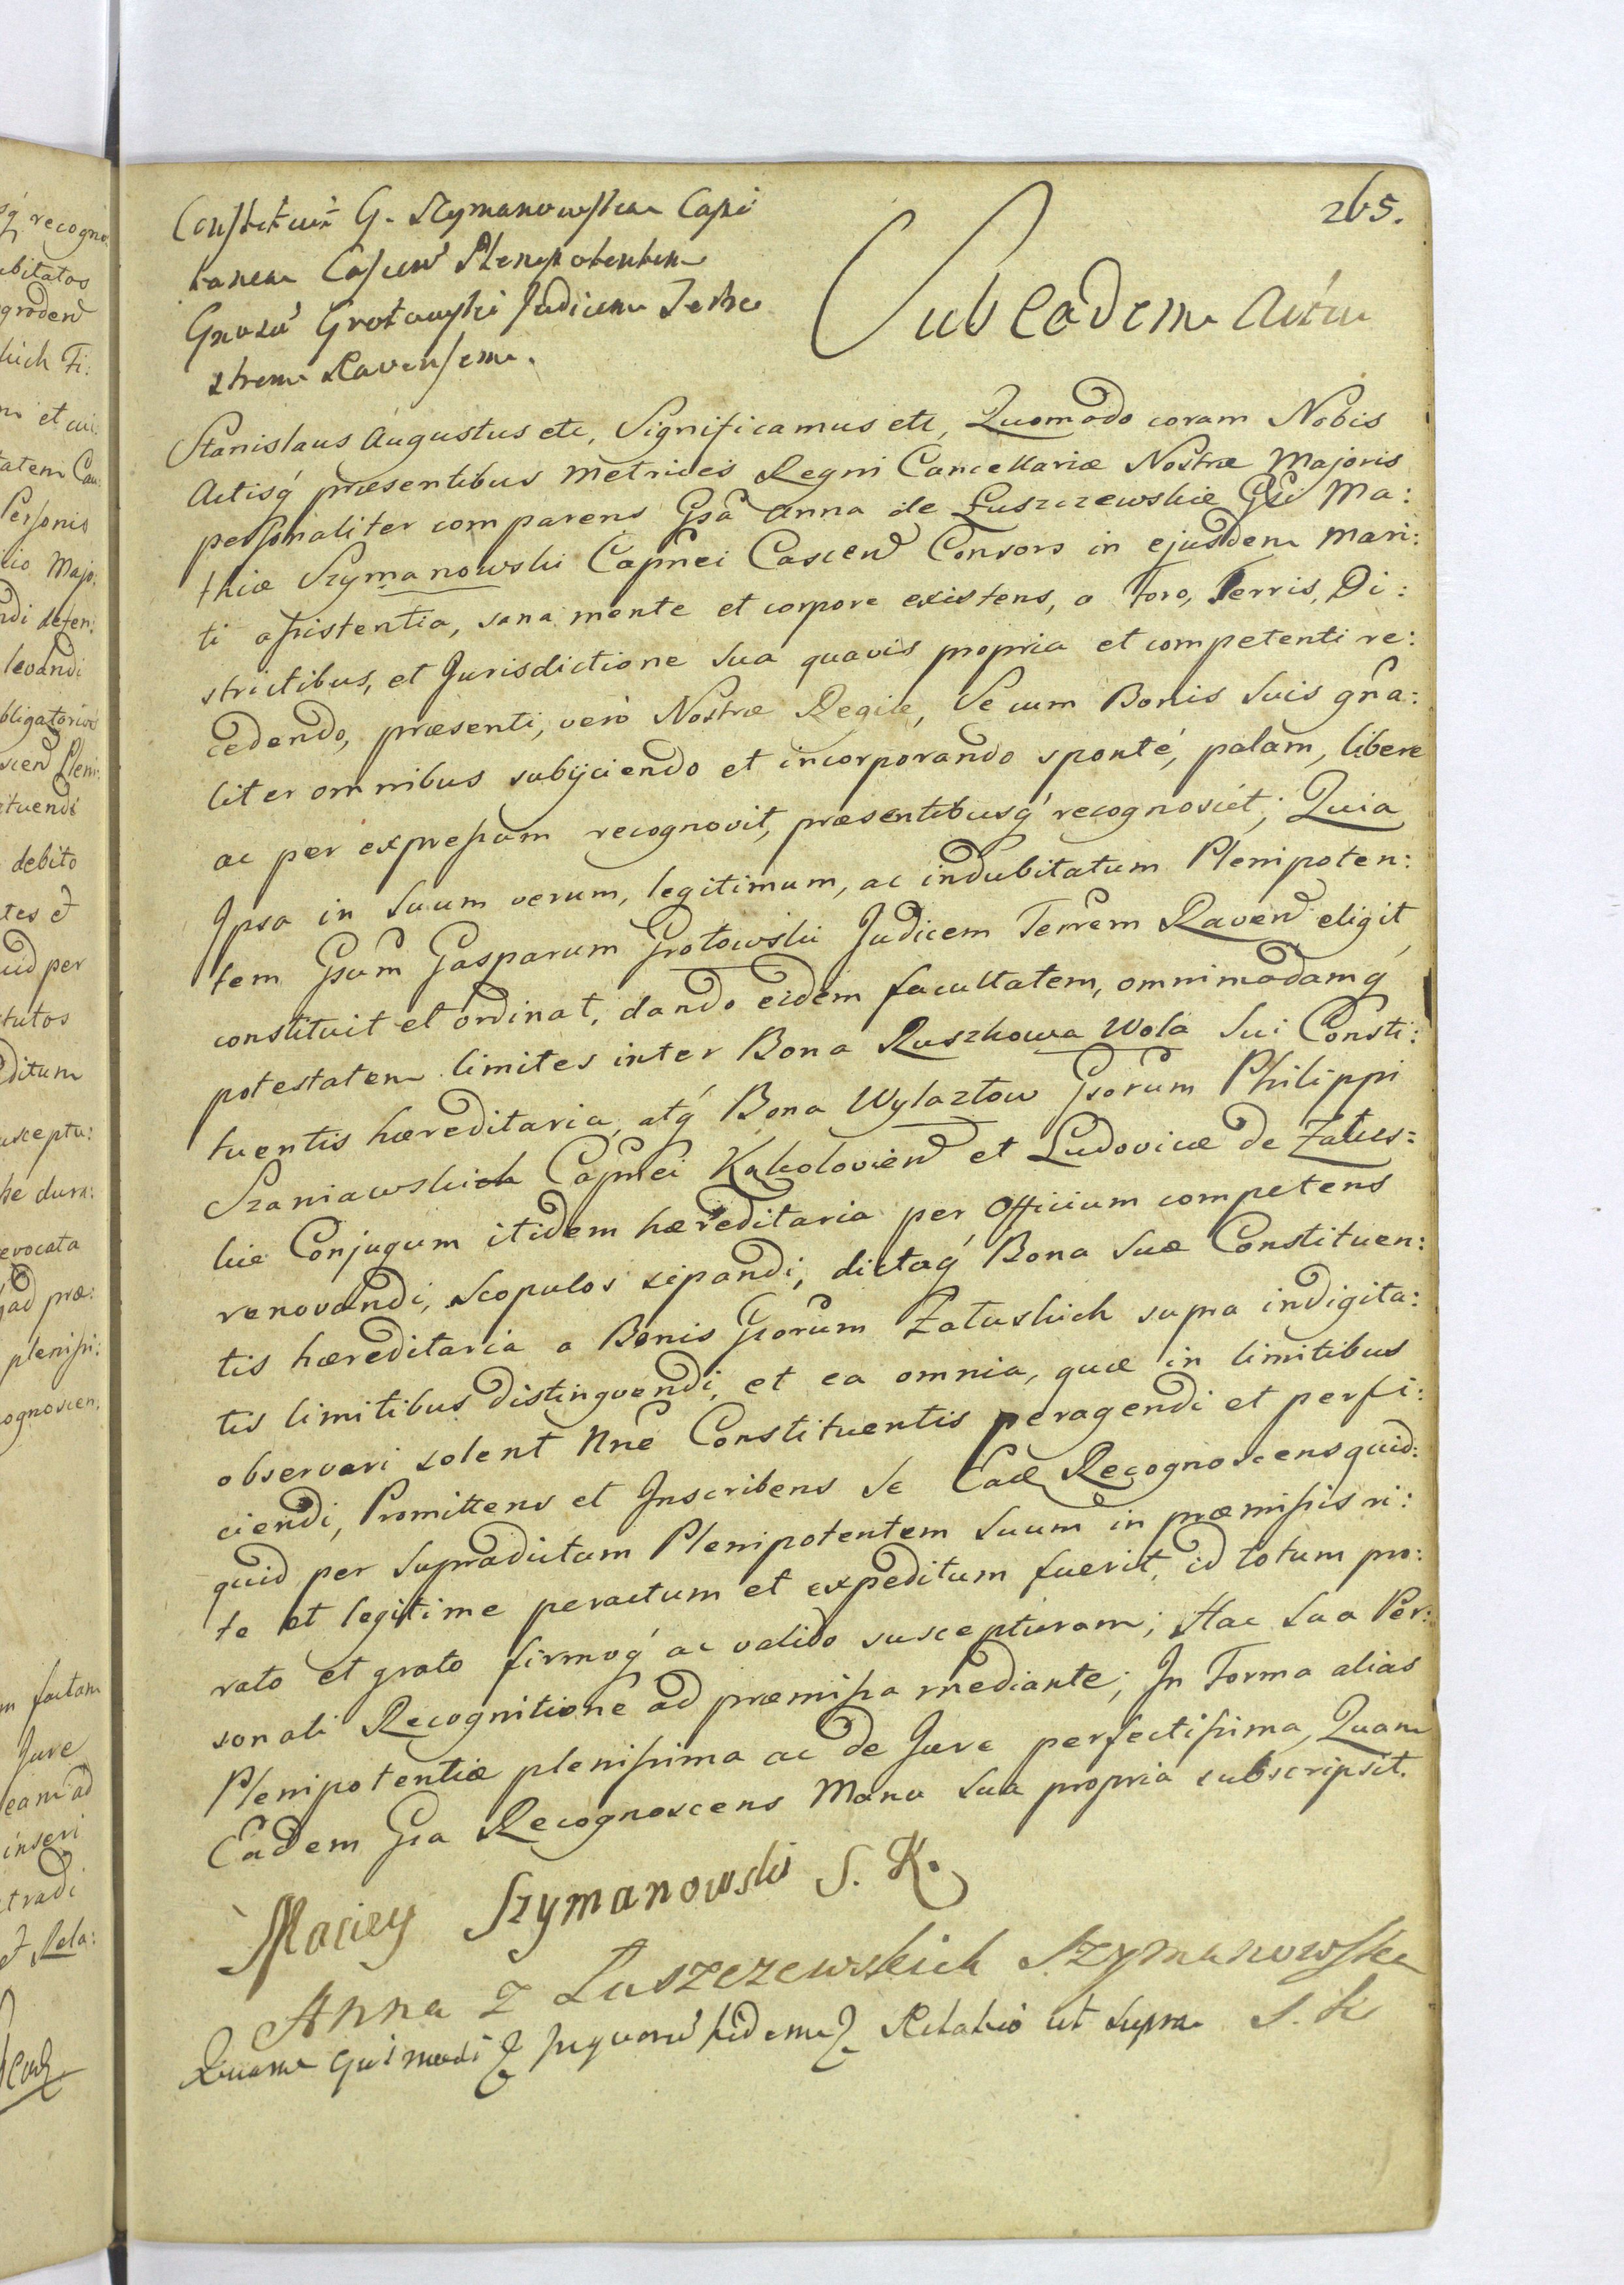 265.
Constituit G. Szymanowska Capi
tanea Cascen Plenipotentem
Gnosu Grotowski Judicem Terre
strem Ravensem.
Sub eadem Actu
Stanislaus Augustus etc, Significamus etc, Quomodo coram Nobis
Actisq́ præsentibus Metrices Regni Cancellariæ Nostræ Majoris
personaliter comparens Gsa Anna de Łuszczewskie Gsi Ma:
thiæ Szymanowski Capnei Cascen Consors in ejusdem mari:
ti assistentia, sana mente et corpore existens, a Foro, Terris, Di:
strictibus, et Jurisdictione sua quavis propria et competenti re:
cedendo, præsenti, verò Nostræ Regiæ, Se cum Bonis Suis gña:
liter omnibus subijciendo et incorporando sponté, palam, libere
ac per expressum recognovit, præsentibusq́ recognoscit; Quia
Ipsa in Suum verum, legitimum, ac indubitatum Plenipoten:
tem Gsum Gasparum Grotowski Judicem Terrem Raven eligit,
constituit et ordinat, dando eidem facultatem, omnimodamq́
potestatem limites inter Bona Ruszkowa Wola Sui Consti:
tuentis hæreditaria, atq́ Bona Wylaztow Gsorum Philippi
Szaniawskich Capnei Kąkolovien et Ludovicæ de Załus:
kie Conjugum itidem hæreditaria per Officium competens
renovandi, Scopulos sipandi, dictaq́ Bona Suæ Constituen:
tis hæreditaria a Bonis Gsorum Załuskich supra indigita:
tis limitibus distinguendi, et ea omnia, quæ in limitibus
observari solent Nne Constituentis peragendi et perfi:
ciendi, Promittens et Inscribens Se Eadℯ Recognoscens quid:
quid per Supradictum Plenipotentem Suum in præmissis ri:
te et legitime peractum et expeditum fuerit, id totum pro:
rato et grato firmoq́ ac valido suscepturam; Hac Sua Per:
sonali Recognitione ad præmissa mediante; In Forma alias
Plenipotentiæ plenissima ac de Jure perfectissima, Quam
Eadem Gsa Recognoscens Manu Sua propria subscripsit.
Maciey Szymanowski S. K.
Anna z Łuszczewskich Szymanowska
S. K
Relatio ut supra